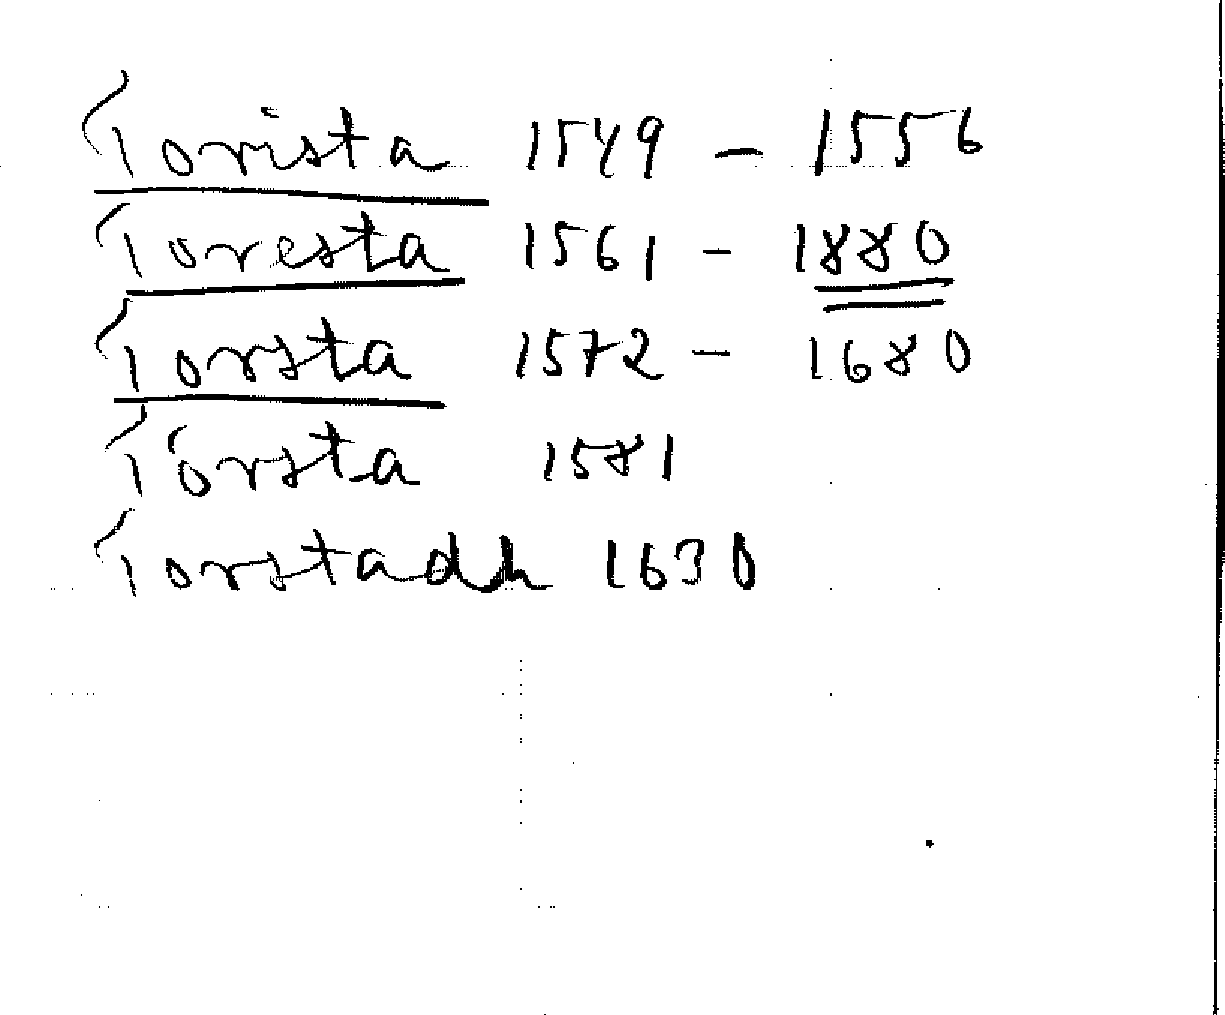 Torista 1549 - 1556
Toresta 1561 - 1880
Torsta 1572 - 1680
Törsta 1581
Torstadh 1630